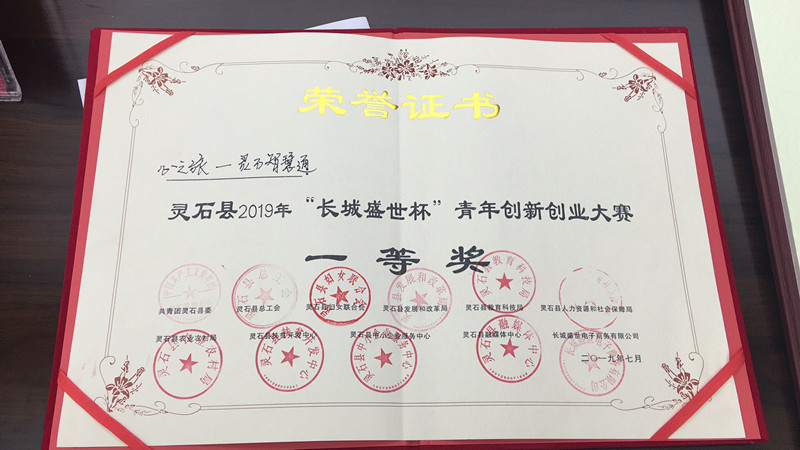 荣誉证书
心之旅—灵石智慧通
灵石县2019年“长城盛世杯”青年创新创业大赛
一等奖
共青团灵石县委 灵石县总工会 灵石县妇女联合会 灵石县发展和改革局 灵石县教育科技局 灵石县人力资源和社会保障局
灵石县农业农村局 灵石县扶贫开发中心 灵石县中小企业服务中心 灵石县融媒体中心 长城盛世电子商务有限公司
二〇一九年七月